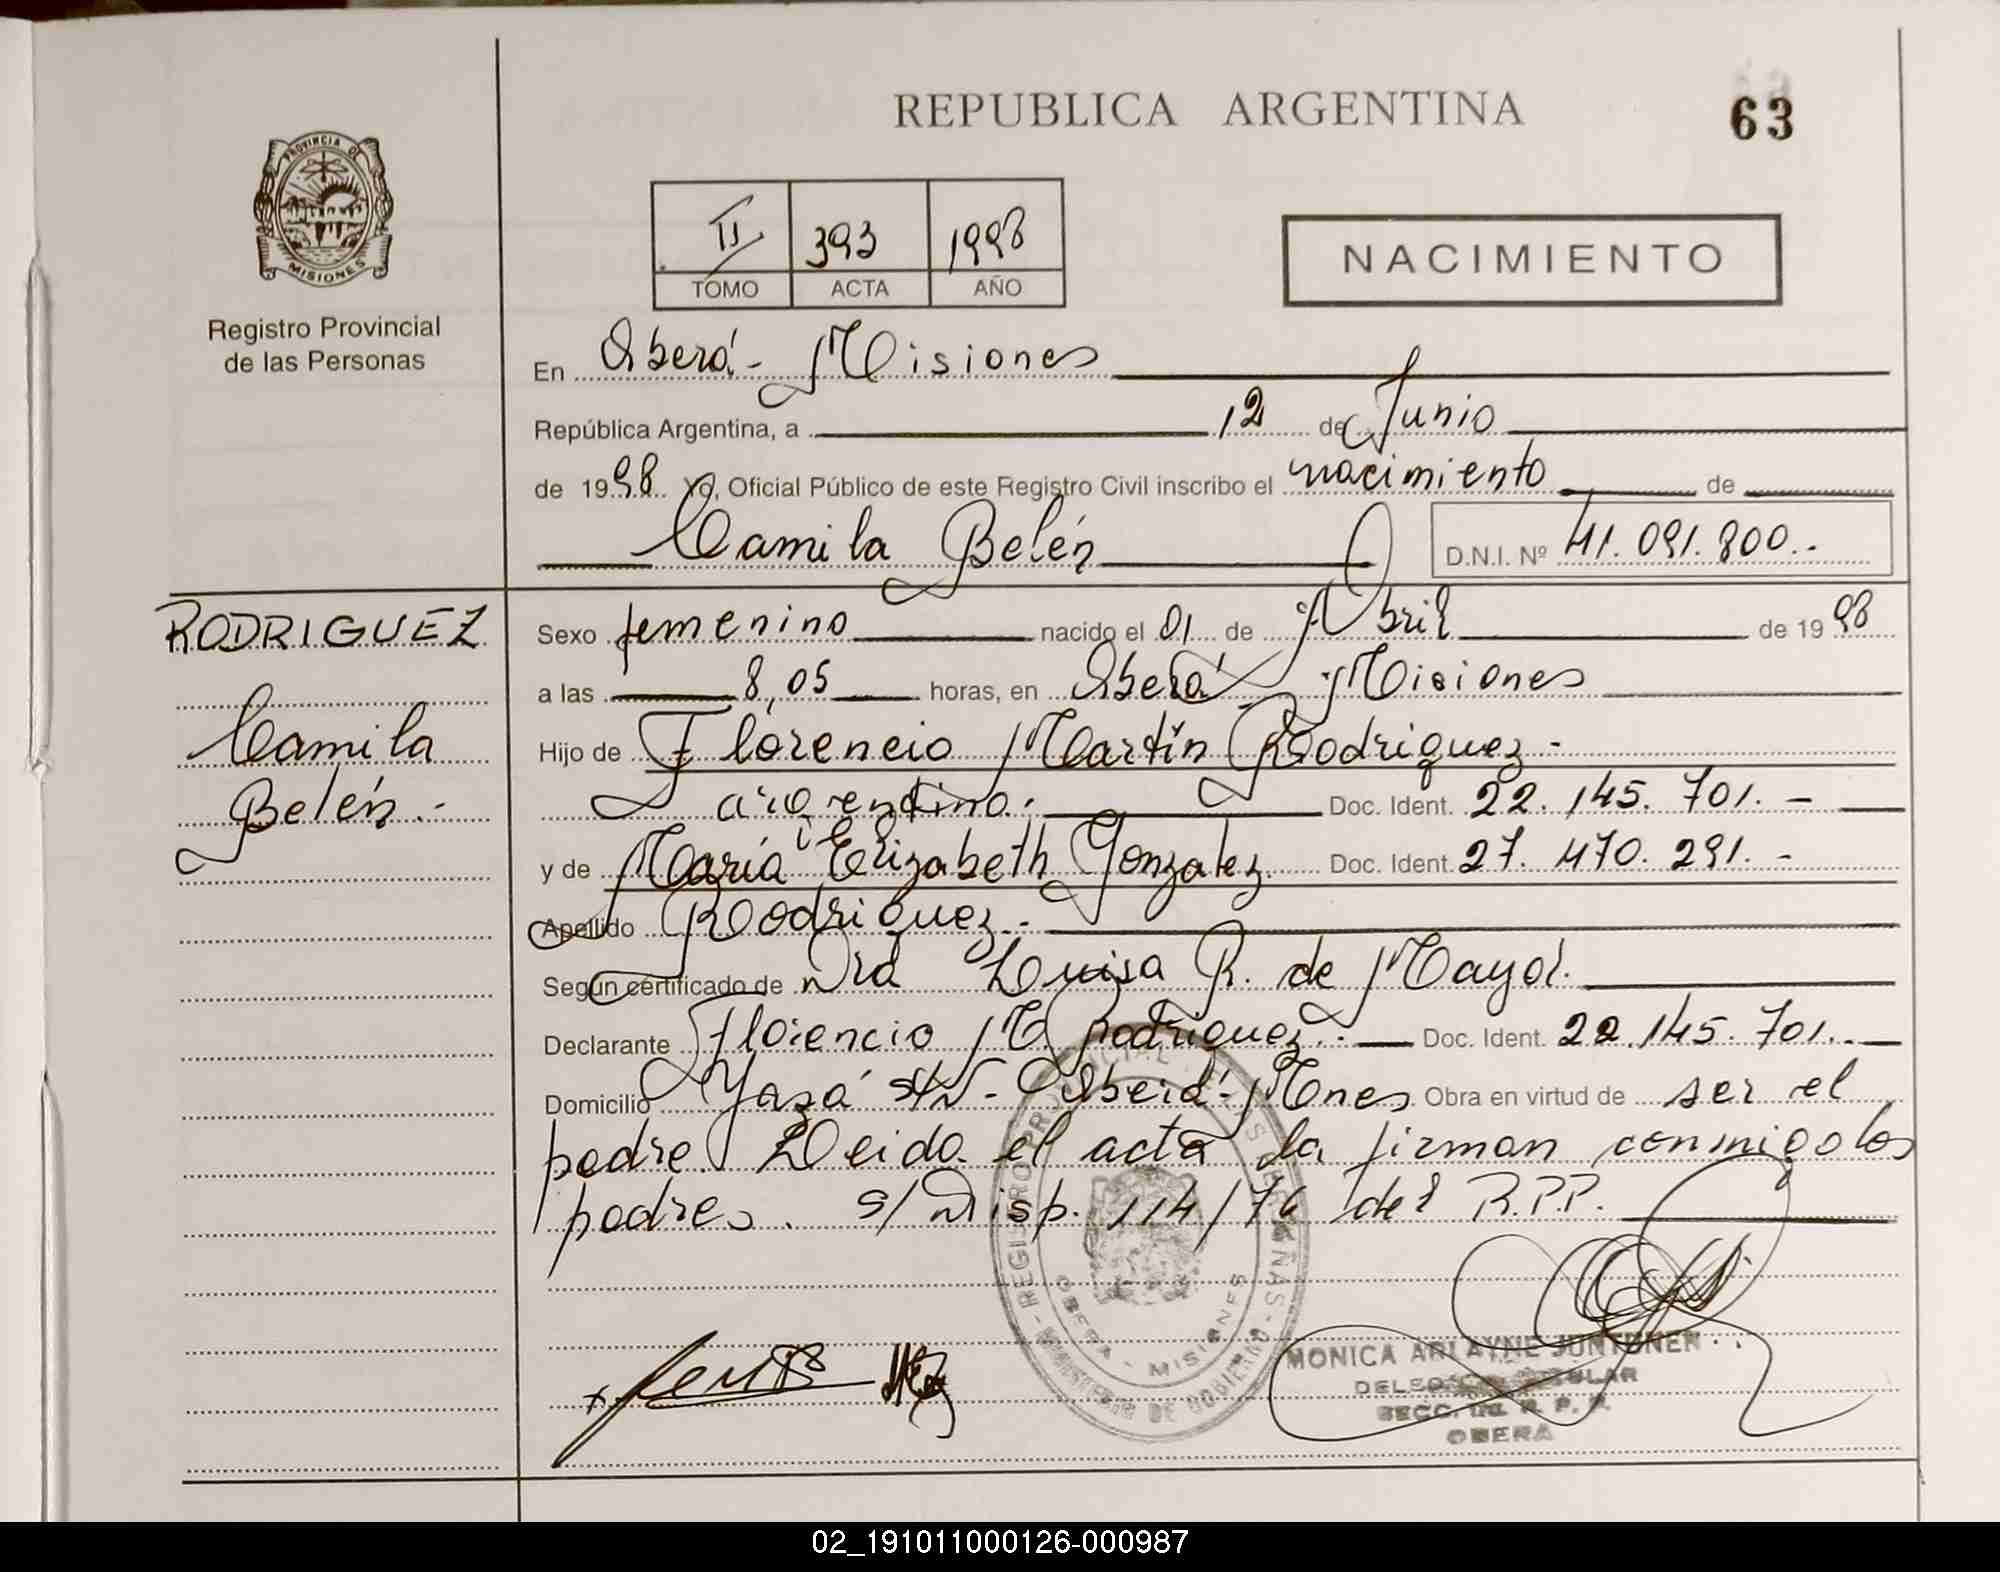 REPUBLICA ARGENTINA
63
PROVINCIA DE
MISIONES
Registro Provincial
de las Personas
II 393 1998
TOMO ACTA AÑO
NACIMIENTO
En Oberá - Misiones
República Argentina, a 12 de Junio
de 1998 Yo, Oficial Público de este Registro Civil inscribo el nacimiento de
Camila Belén D.N.I. Nº 41.091.800.-
RODRIGUEZ
Camila
Belén.-
Sexo femenino nacido el 01 de Abril de 1998
a las 8,05 horas, en Oberá Misiones
Hijo de Florencio Martín Rodriguez -
argentino. Doc. Ident. 22.145.701.-
y de María Elizabeth Gonzalez Doc. Ident. 27.470.291.-
Apellido Rodriguez.-
Según certificado de Dra Luisa R. de Mayol.
Declarante Florencio M Rodriguez.- Doc. Ident. 22.145.701.
Domicilio Yazá s/N - Oberá - Mnes Obra en virtud de ser el
padre. Leida el acta la firman conmigo los
padres. s/Disp. 114/76 del R.P.P.
REGISTRO PROVINCIAL DE LAS PERSONAS
OBERA - MISIONES
MINISTERIO DE GOBIERNO
MONICA ARLAYNE JUNTUNEN
DELEGADA TITULAR
SECC. R. P. P.
OBERA
02_191011000126-000987